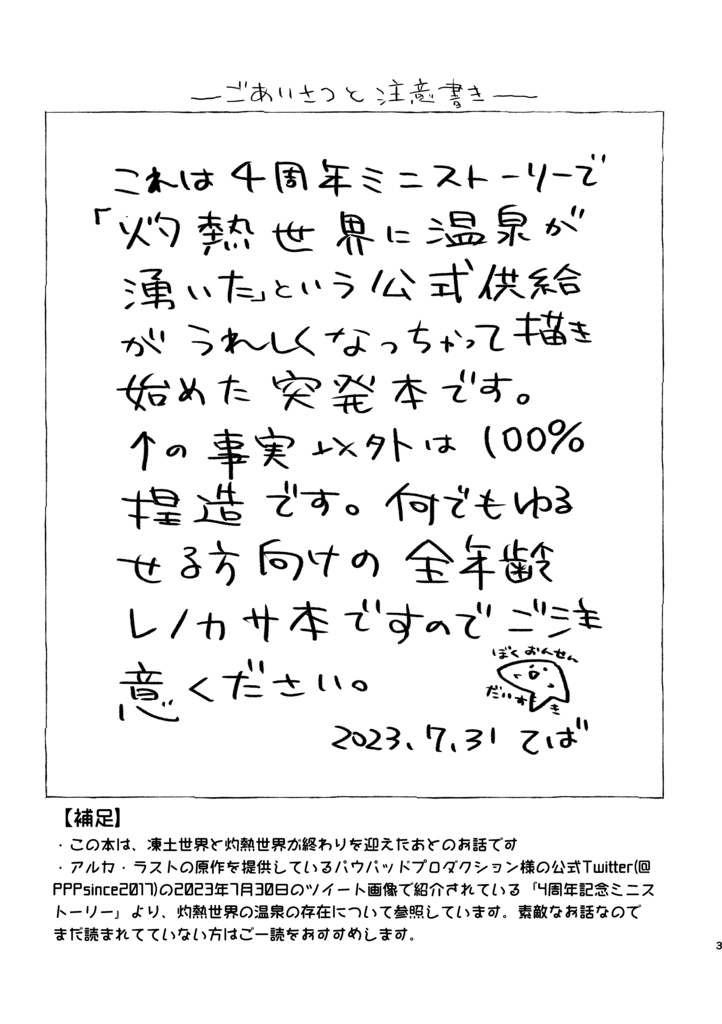 ごあいさつと注意書き
これは4周年ミニストーリーで
「灼熱世界に温泉が
湧いた」という公式供給
がうれしくなっちゃって描き
始めた突発本です。
↑の事実以外は100%
捏造です。何でもゆる
せる方向けの全年齢
レノカサ本ですのでご注
意ください。
ぼくおんせん
だいすき
2023.7.31 てば
【補足】
・この本は、凍土世界と灼熱世界が終わりを迎えたあとのお話です
・アルカ・ラストの原作を提供しているパウパッドプロダクション様の公式Twitter(@
PPPsince2017)の2023年7月30日のツイート画像で紹介されている「4周年記念ミニス
トーリー」より、灼熱世界の温泉の存在について参照しています。素敵なお話なので
まだ読まれてていない方はご一読をおすすめします。
3